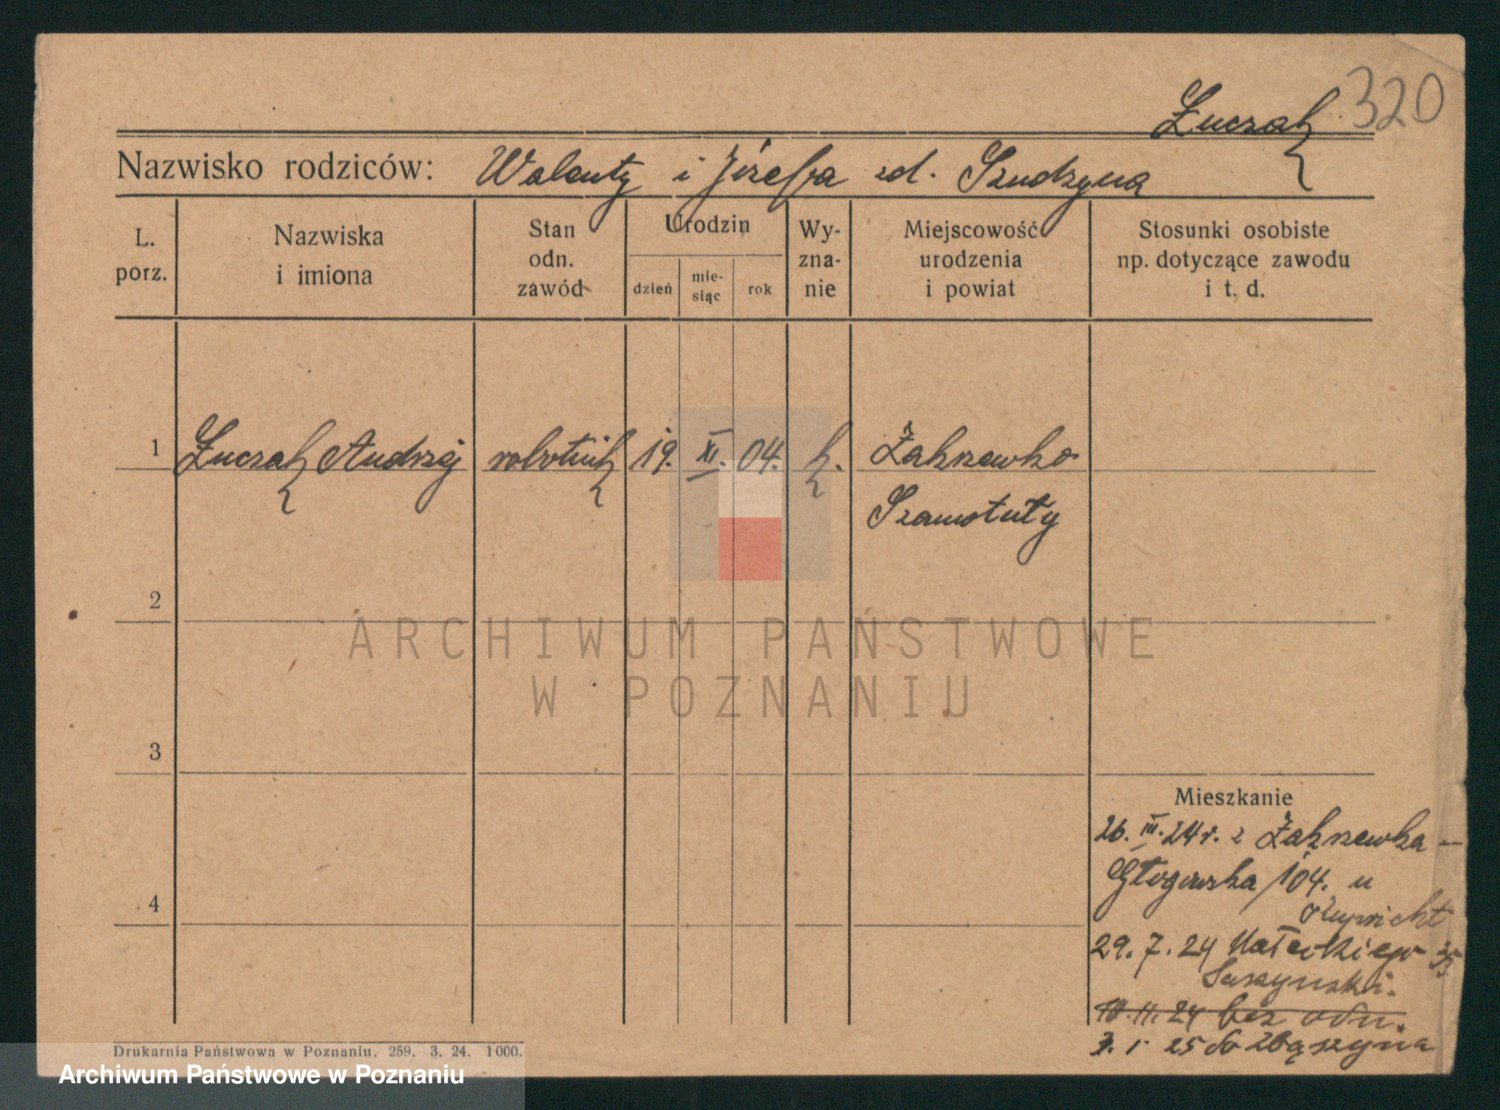 320
Łuczak
Nazwisko rodziców: Walenty i Józefa zd. Szudzyna
L. porz.
Nazwiska i imiona
Stan odn. zawód
Urodzin
dzień
mie-
siąc
rok
Wy-
zna-
nie
Miejscowość
urodzenia
i powiat
Stosunki osobiste
np. dotyczące zawodu
i t. d.
1 Łuczak Andrzej robotnik 19. XI. 04. k. Żakrzewko
Szamotuły
2
3
4
Mieszkanie
26. III. 24 r. z Żakrzewka –
Głogowska 104. u
29. 7. 24 Małeckiego
10. 11. 24 bez odm.
3. 1 25 do Zbąszynia
Drukarnia Państwowa w Poznaniu. 259. 3. 24. 1000.
ARCHIWUM PAŃSTWOWE
W POZNANIU
Archiwum Państwowe w Poznaniu